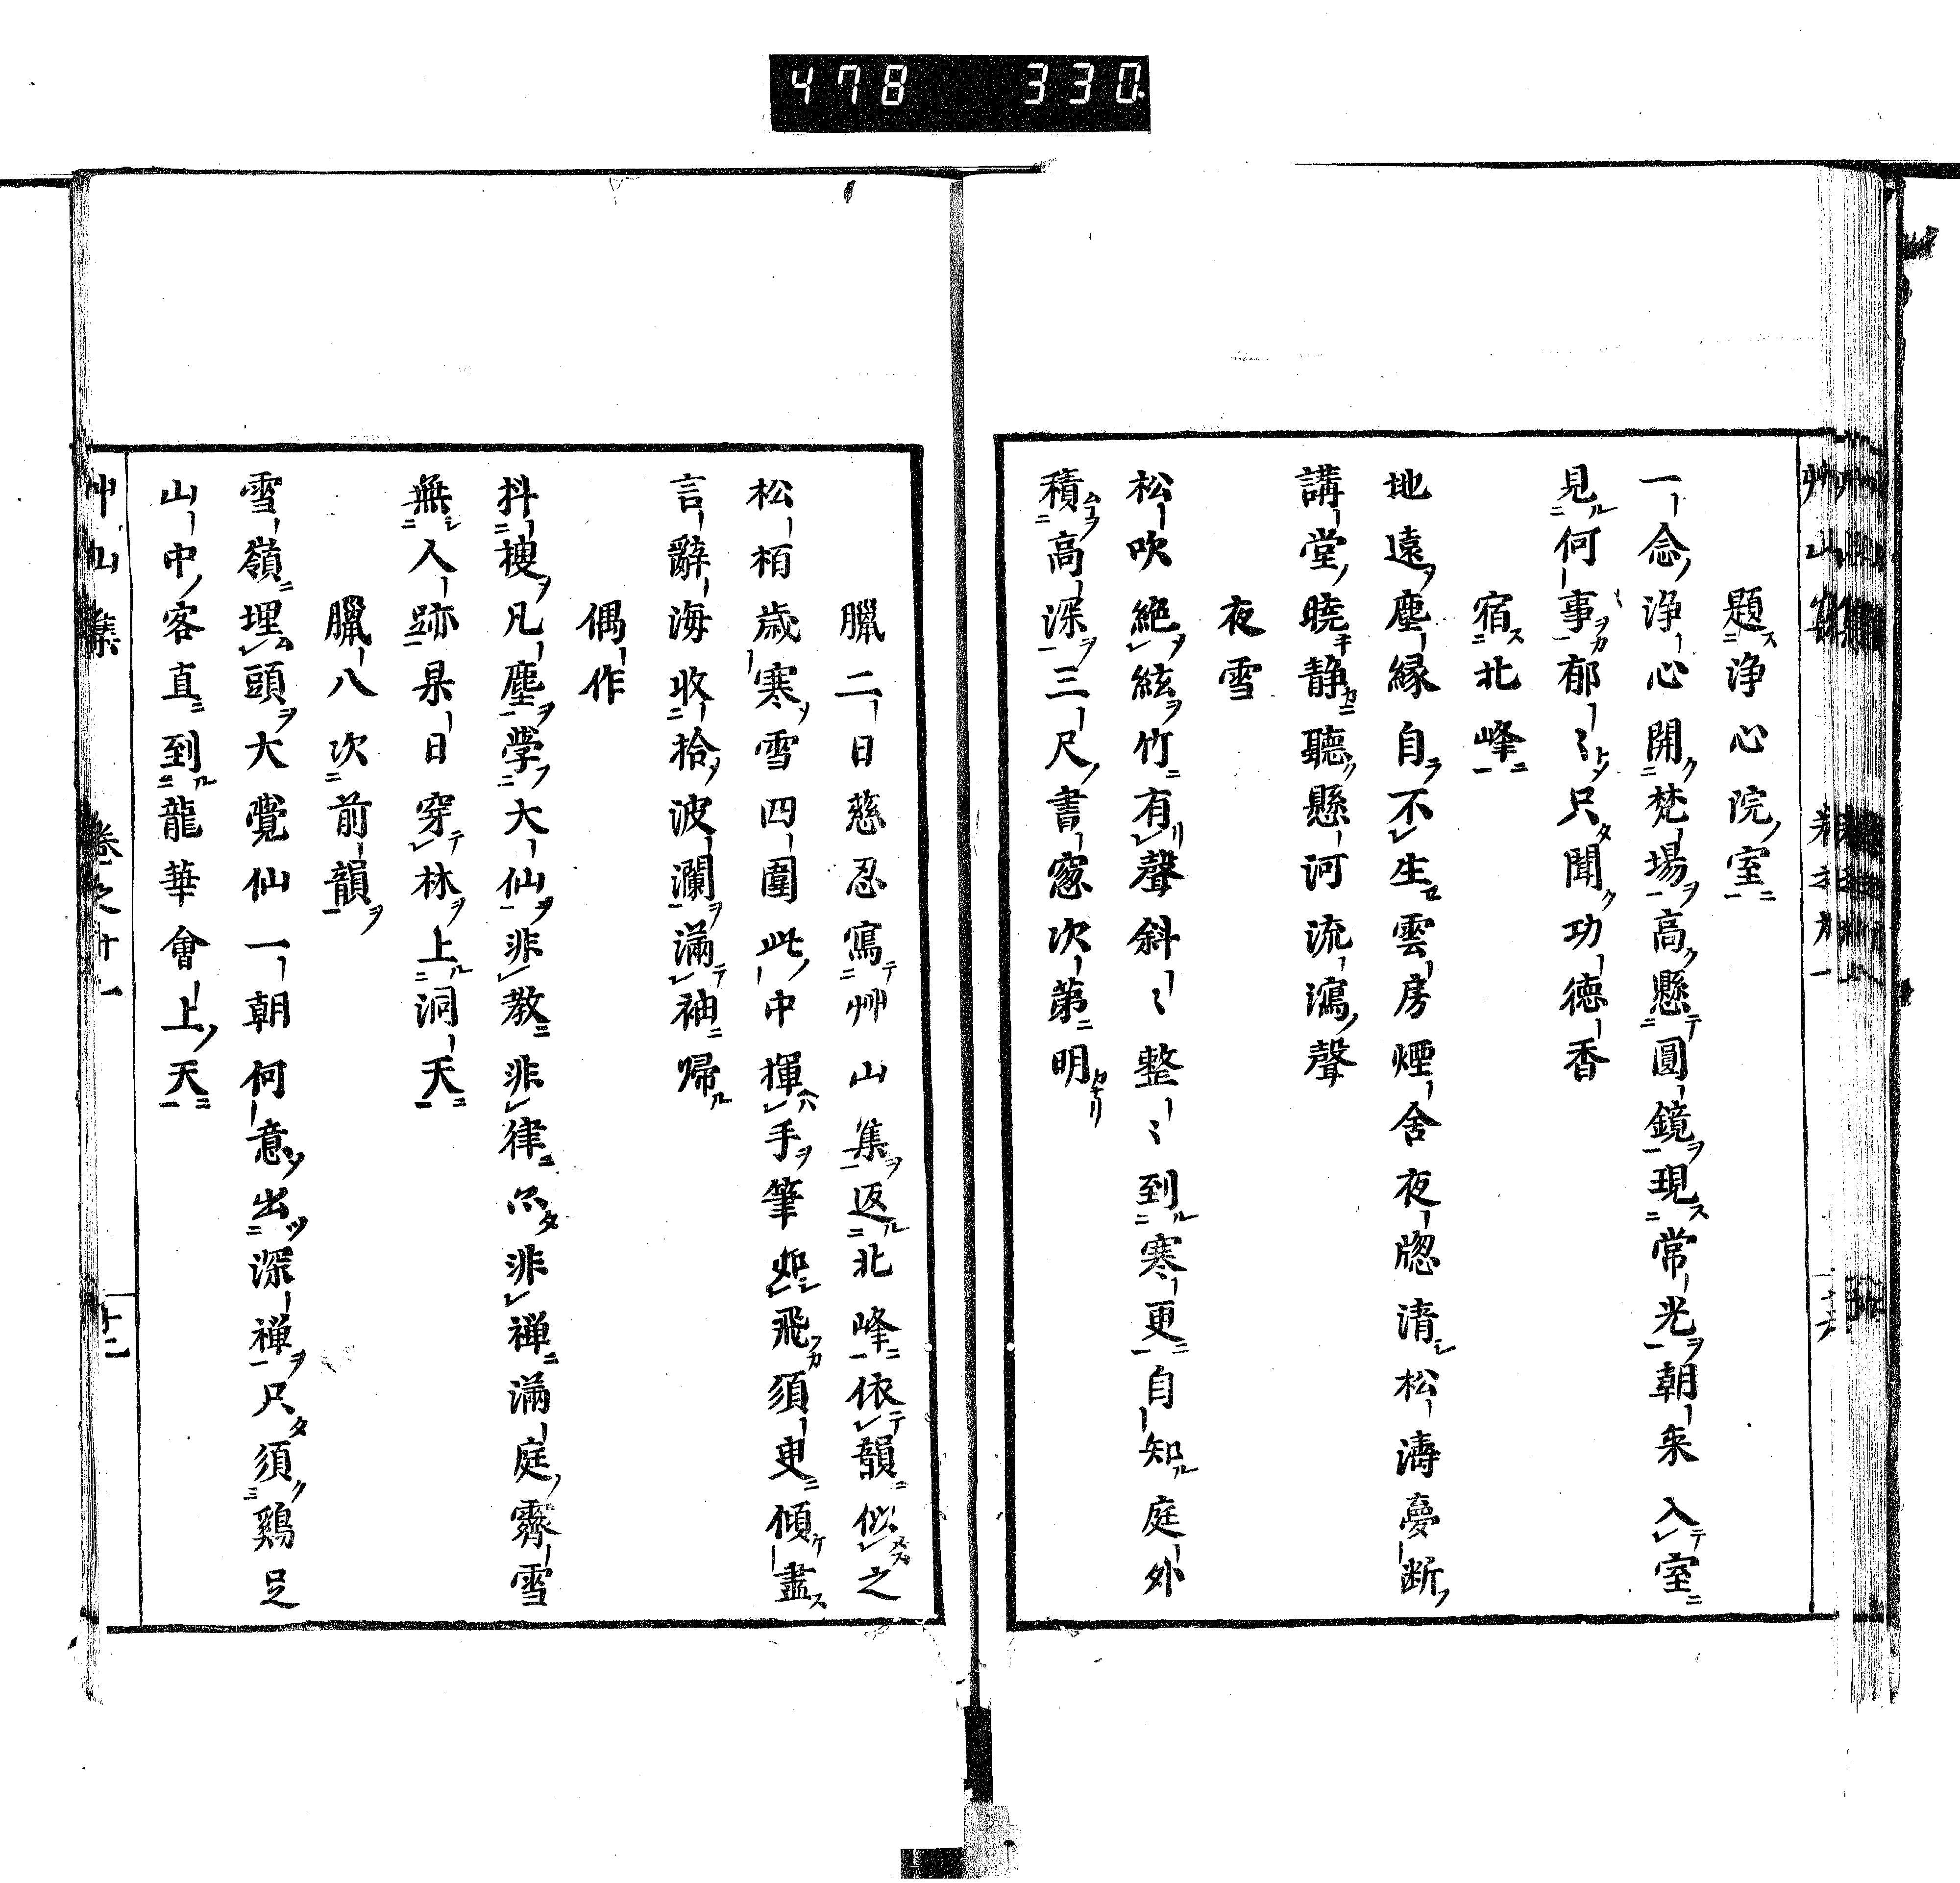 478 330.
題浄心院室
一念浄心開梵場高懸圓鏡現常光朝来入室
見何事郁〻只聞功徳香
宿北峰
地遠塵縁自不生雲房煙舍夜牎清松濤夢断
講堂曉静聽懸河流瀉聲
夜雪
松吹絶絃竹有聲斜〻整〻到寒更自知庭外
積高深三尺書窓次第明
臘二日慈忍寫艸山集返北峰依韻似之
松栢歳寒雪四圍此中揮手筆飛須更傾盡
言辭海收拾波瀾滿袖歸
偶作
抖擻凡塵学大仙非教非律尒非禅滿庭霽雪
無人跡杲日穿林上洞天
臘八次前韻
雪嶺埋頭大覺仙一朝何意出深禅只須鷄足
山中客直到龍華會上天
艸山集 卷之廿一 廿二